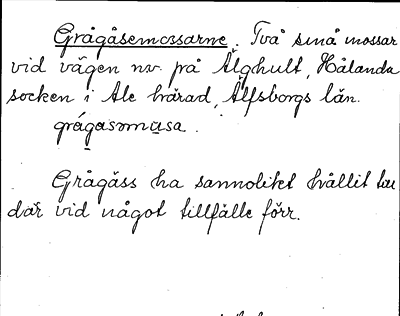 Grågåsemossarne. Två små mossar
vid vägen nv. på Älghult, Hålanda
socken i Ale härad, Älfsborgs län.
grágasomusa.
Grågåss ha sannolikt hållit till
där vid något tillfälle förr.